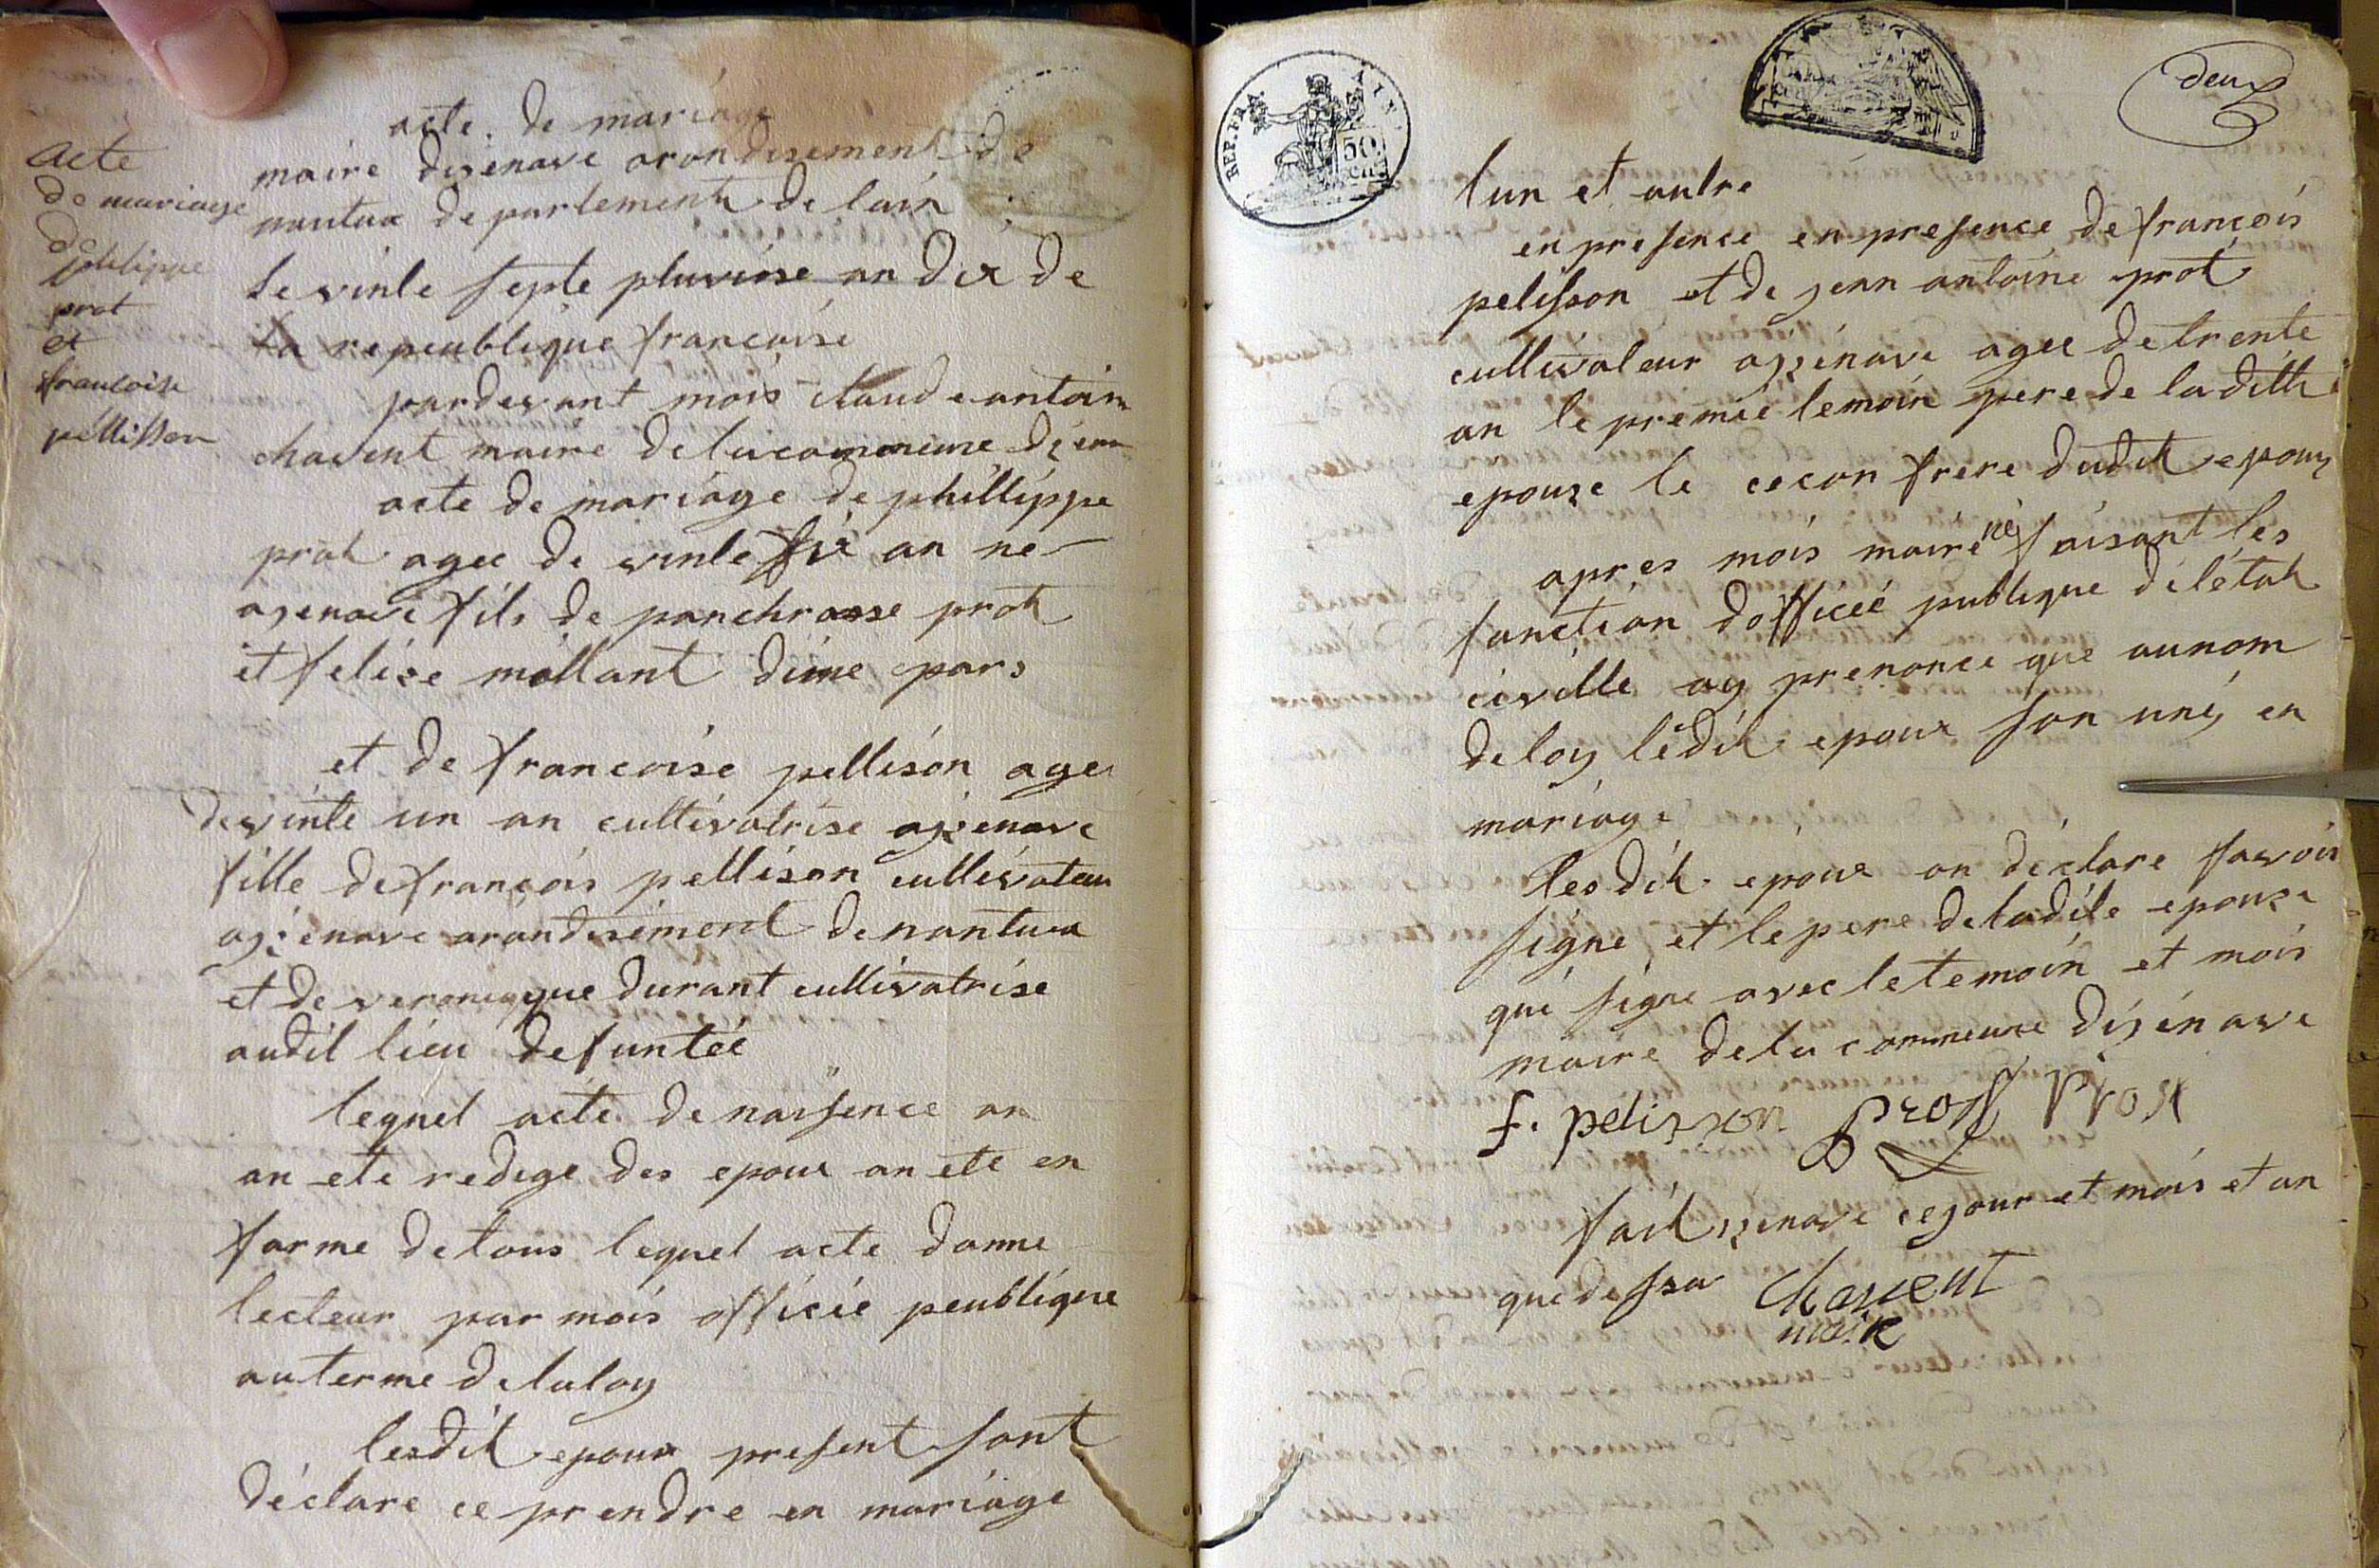 acte de mariage
maire disenave arondisement de
nantua de partement de lain
Acte
de mariage
de
philippe
prot
et
francoise
pellisson
le vinte septe pluviose an dix de
la repeublique francoise
pardevant mois claude antoin
chavent maire de la commeune
acte de mariage de phillippe
prot agee de vinte six an ne
asenave fils de panchrasse prot
et felise mollant dime pars
et de francoise pellison age
de vinte un an cultivatrise azienave
fille de françois pellison cullivateur
azienave arondisiment de nantua
et de veronicque durant cullivatrise
audit lieu defuntée
lequel acte de naissence an
an ete redige des epoux an ete en
forme de tous lequel acte donne
lecteur par mois officié peublique
au terme de la loy
lesdit epoux present sont
déclare ce prendre en mariage
REP. FRA.
50
deux
lun et autre
en presence en presence de françois
pelisson et de jean antoine prot
cullivateur azienave agee de trente
an le premié temoin pere de la ditte
epouze le cecon frere dudit epoux
apres mois maire faisant les
fonction dofficeé publique de létat
civille ay prenonce que au nom
de loy lédit epoux son uniy en
mariage
lesdit epoux on declare savoir
signe et le pere de ladite epouse
qui signe avec le temoin et mois
maire de la commeune dizénave
f. pelisson prost Prost
fait izenave ce jour et mois et an
que dessu Chavent
maire